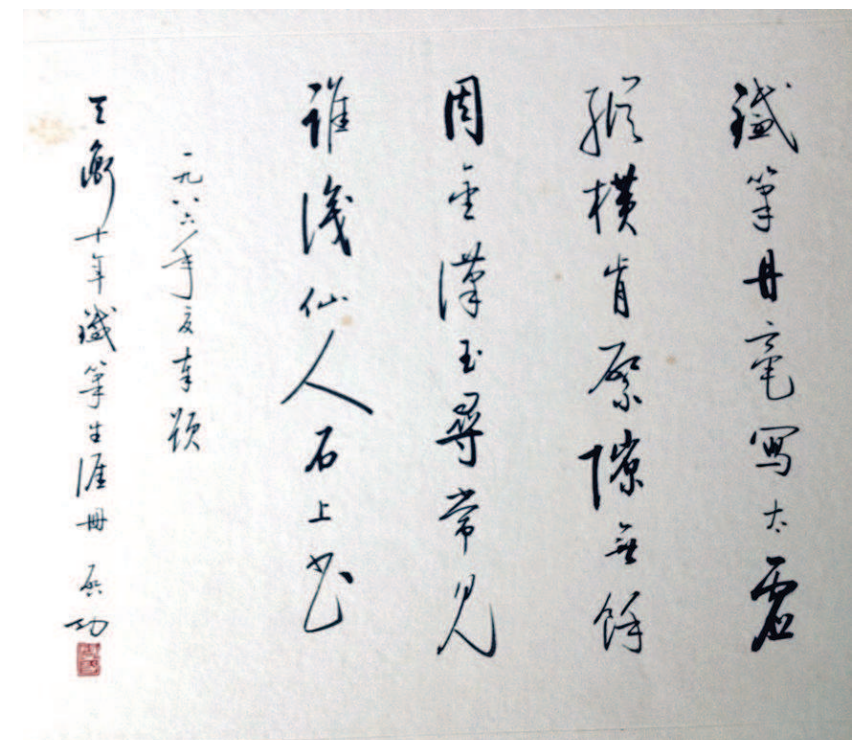 鐵筆丹毫寫太虛
縱橫肯綮隙無餘
周金漢玉尋常見
誰識仙人石上書
一九八六年夏奉題
王衡十年鐵筆生涯冊 啟功